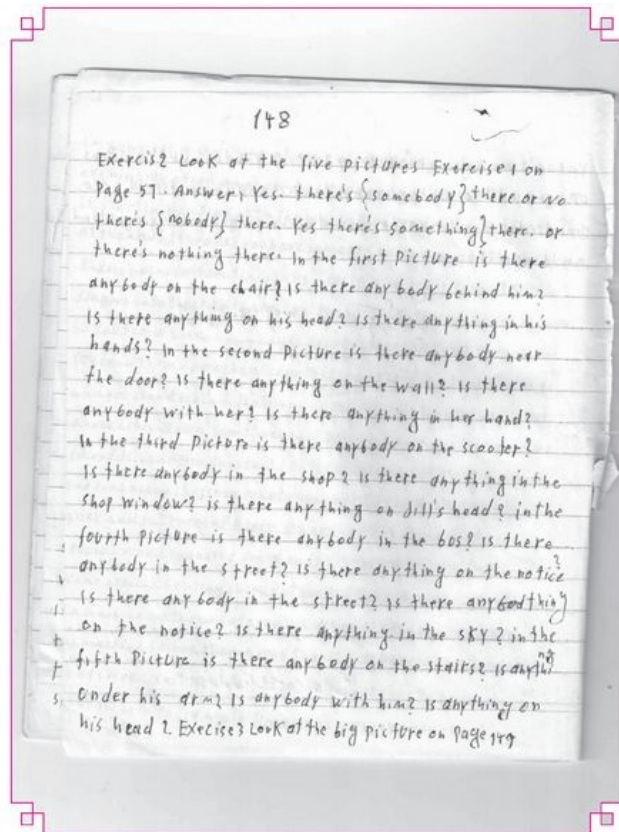 148
Exercis2 Look at the five pictures Exercise 1 on
Page 57. Answer, Yes. there's {somebody} there or No
there's {nobody} there. Yes there's something} there. or
there's nothing there. In the first picture is there
anybody on the chair? Is there any body behind him?
Is there anything on his head? Is there anything in his
hands? In the second Picture is there anybody near
the door? Is there anything on the wall? Is there
anybody with her? Is there anything in her hand?
In the third Picture is there anybody on the scooter?
Is there anybody in the shop? is there anything in the
shop window? is there any thing on Jill's head? in the
fourth picture is there anybody in the bus? Is there
anybody in the street? is there anything on the notice?
Is there any body in the street? Is there anybodthing
on the notice? Is there anything in the sky? in the
fifth Picture is there any body on the stairs? Is anything
under his arm? Is anybody with him? Is anything on
his head? Execise3 Look at the big picture on Page 149